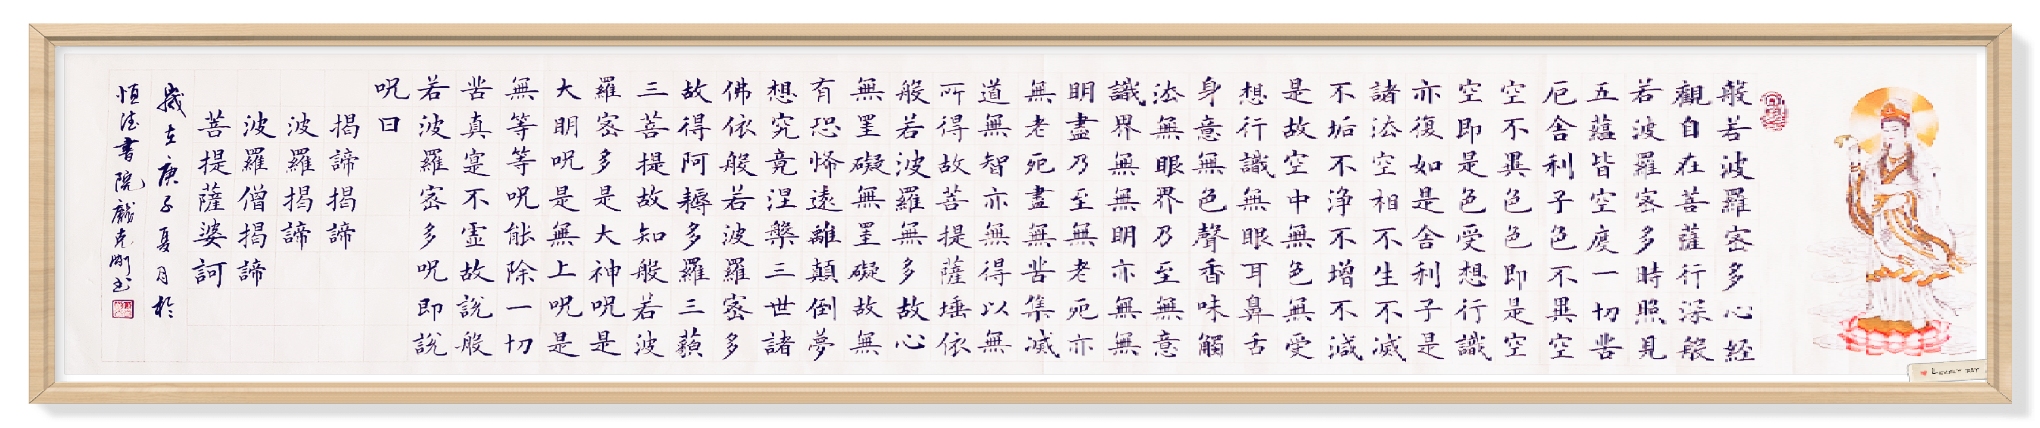 般若波羅密多心経
觀自在菩薩行深般
若波羅密多時照見
五蘊皆空度一切苦
厄舍利子色不異空
空不異色色即是空
空即是色受想行識
亦復如是舍利子是
諸法空相不生不滅
不垢不淨不增不減
是故空中無色無受
想行識無眼耳鼻舌
身意無色聲香味觸
法無眼界乃至無意
識界無無明亦無無
明盡乃至無老死亦
無老死盡無苦集滅
道無智亦無得以無
所得故菩提薩埵依
般若波羅無多故心
無罣礙無罣礙故無
有恐怖遠離顛倒夢
想究竟涅槃三世諸
佛依般若波羅密多
故得阿耨多羅三藐
三菩提故知般若波
羅密多是大神呪是
大明呪是無上呪是
無等等呪能除一切
苦真實不虛故說般
若波羅密多呪即說
呪曰
揭諦揭諦
波羅揭諦
波羅僧揭諦
菩提薩婆訶
歲在庚子夏月於
恒法書院龍克剛书